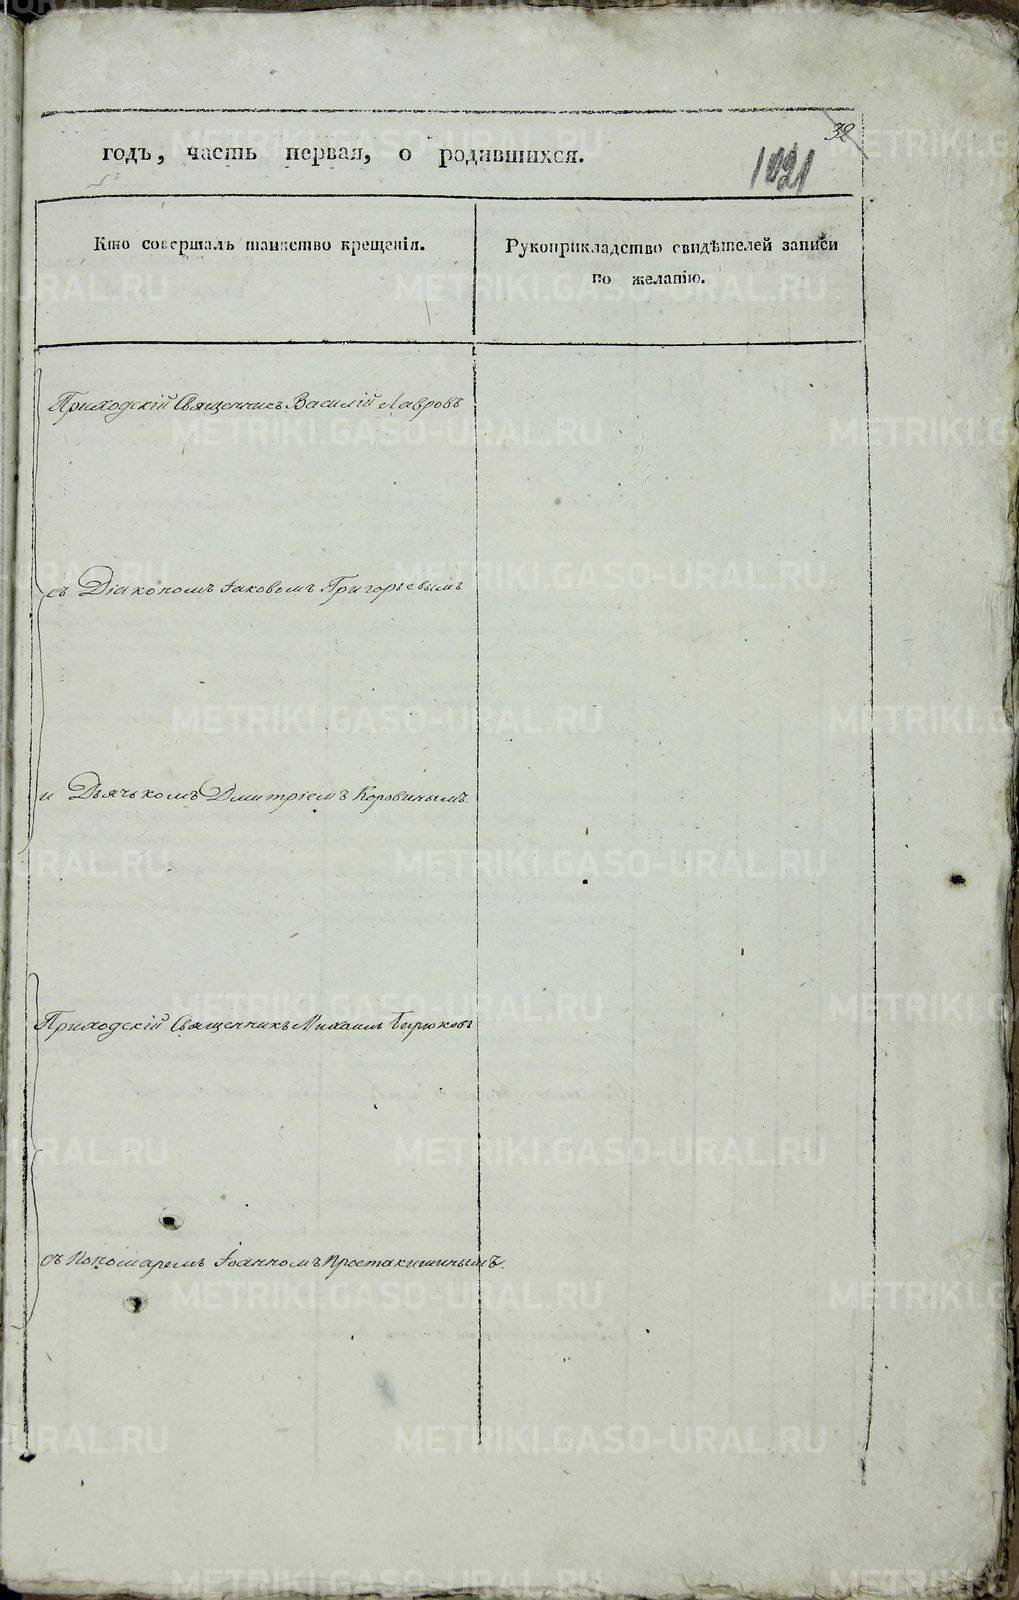 32
годъ, часть первая, о родившихся.
1021
Кто совершалъ таинство крещенія.
Рукоприкладство свидѣтелей записи
по желанію.
Приходскій Священникъ Василій Лавровъ
съ Діакономъ Іаковомъ Григорьевымъ
и Дьячькомъ Дмитріемъ Коровинымъ
Приходскій Священникъ Михаилъ Бирюковъ
съ Пономаремъ Іоанномъ Простакишинымъ.
METRIKI.GASO-URAL.RU